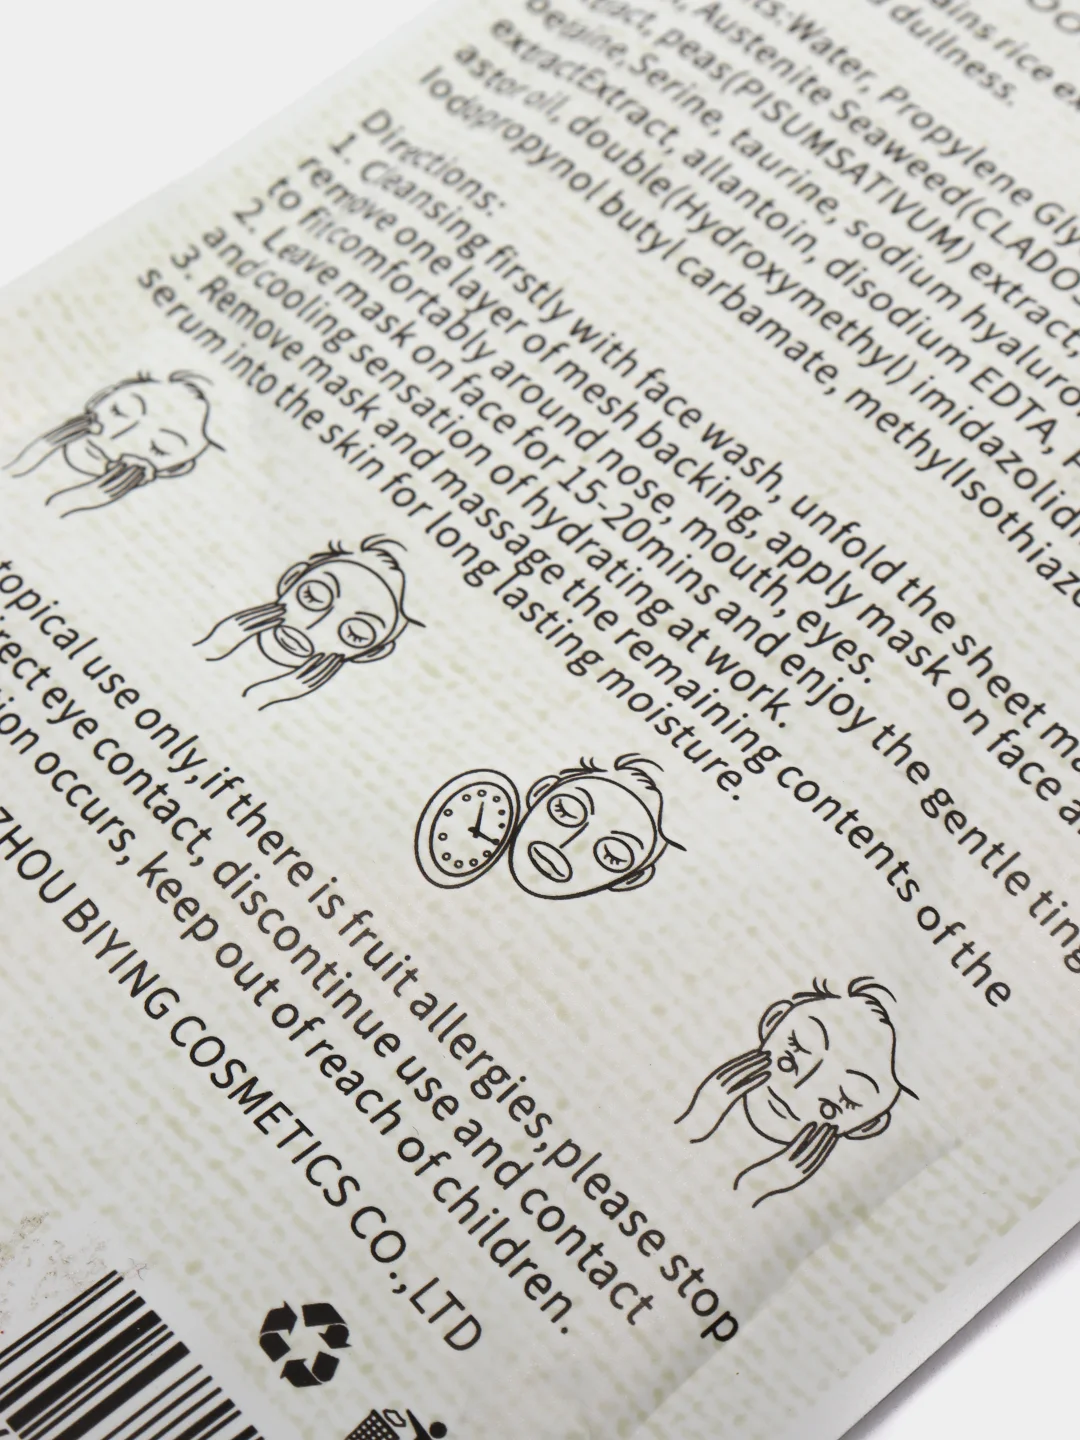 ains rice ex
dullness.
ts:Water, Propylene Gly
Austenite Seaweed(CLADOS
peas(PISUMSATIVUM) extract,
Serine, taurine, sodium hyaluron
extractExtract, allantoin, disodium EDTA, p
astor oil, double(Hydroxymethyl) imidazolidin
Iodopropynol butyl carbamate, methyllsothiazo
Directions:
1. Cleansing firstly with face wash, unfold the sheet ma
remove one layer of mesh backing, apply mask on face a
to fitcomfortably around nose, mouth, eyes.
2. Leave mask on face for 15-20mins and enjoy the gentle ting
andcooling sensation of hydrating at work.
3. Remove mask and massage the remaining contents of the
serum into the skin for long lasting moisture.
topical use only,if there is fruit allergies,please stop
rect eye contact, discontinue use and contact
ion occurs, keep out of reach of children.
ZHOU BIYING COSMETICS CO., LTD